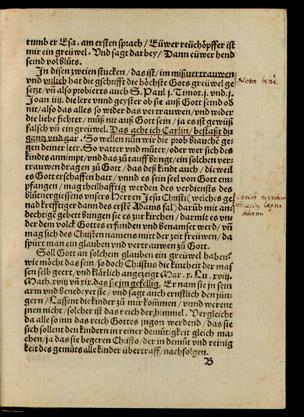 rumb er Esa. am ersten sprach / Eüwer reüchöpffer ist
mir ein greüwel. Vnd sagt darbey / Dann eüwer hend
seind vol blüts.
In disen zweien stucken / das ist / im mißvertrauwen
vnd vnlieb hat die gschrifft die höchste Gots greüwel ge-
setzt / vñ also probierts auch S. Paul j. Timot. j. vnd. j.
Joan iiij. die lere vnnd geyster ob sie auß Gott seind od
nit / also das alles so wider das vertrauwen / vnd wider
die liebe fichtet / müß nit auß Gott sein / ja es ist gewüß
falsch vñ ein greüwel. Das acht ich Carlin / bestaßt du
gantz vnd gar. So wellen nůn wir die prob brauchẽ ge-
gen deiner leer. So vatter vnd müter / oder wer sich des
kindts annimpt / vnd das zü tauff bringt / ein solchen ver
trauwen dragen zü Gott / das des kindt auch / die weil
es Gott erschaffen hatt / vnnd es sein seel von Gott em-
pfangen / mag theilhafftig werden des verdiensts des
blütuergiessens vnsers Herren Jesu Christi (welches ge
nad kreffriger dann des erstẽ Adams fal) darũb mit an-
dechtigẽ gebett bringen sie es zür kirchen / darmit es vn-
der dem volck Gottes erfunden vnd benamset werd / vñ
mag sich des Christen namens mit der zeit freüwen / da
spürt man ein glauben vnd vertrauwen zü Gott.
Soll Gott an solchem glauben ein greüwel haben
wie möcht das sein / so doch Christus die kintheit der maß
sen selb geert / vnd klärlich angezeigt Mar. x. Lu. xviij.
Math. xviij vñ xix. das sie jm gefellig. Er nam sie jn sein
arm vnd benedeyet sie / vnd sagt auch ernstlich den jün-
gern / Lassent die kinder zü mir kommen / vnnd werent
jnen nicht / solcher ist das reich der himmel. Vergleicht
da alle so inn das reich Gottes jngon werdend / das sie
sich sollent den kindern in reiner demütigkeit gleich ma-
chen / ja das sie begeren Christo / der in demüt vnd reinig
keit des gemüts alle kinder übertraff / nachfolgen.
B
Nota bene.